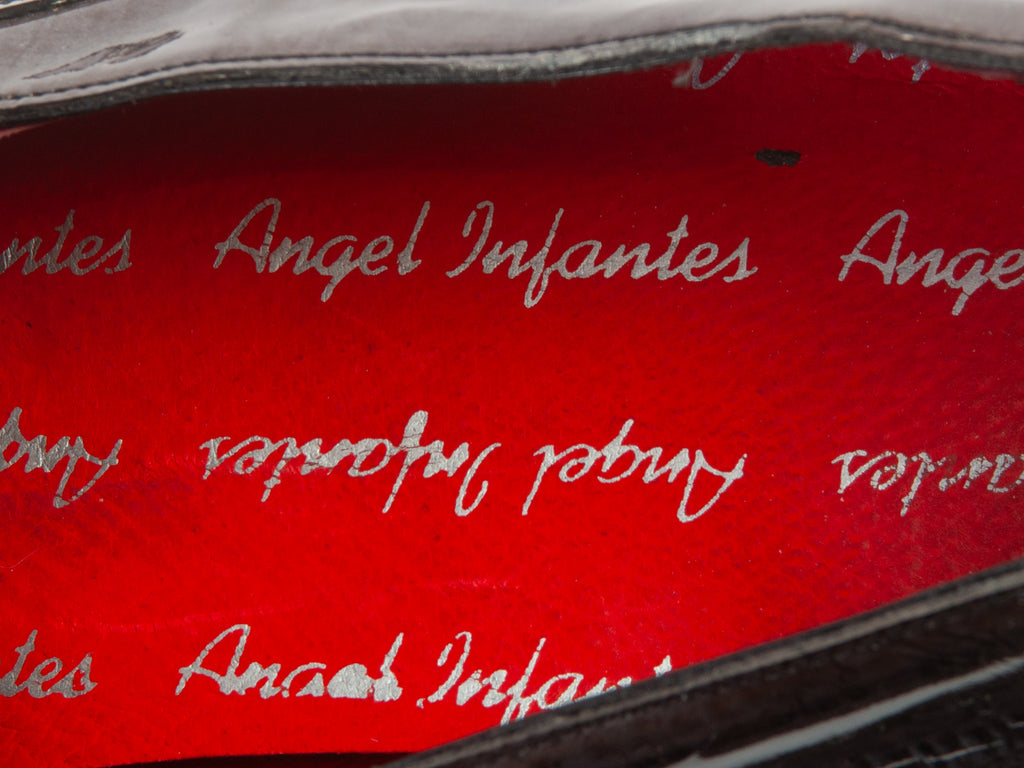 ntes Angel Infantes Ange
Angel Infantes Ang
Angel Infantes
tes Angel Infantes